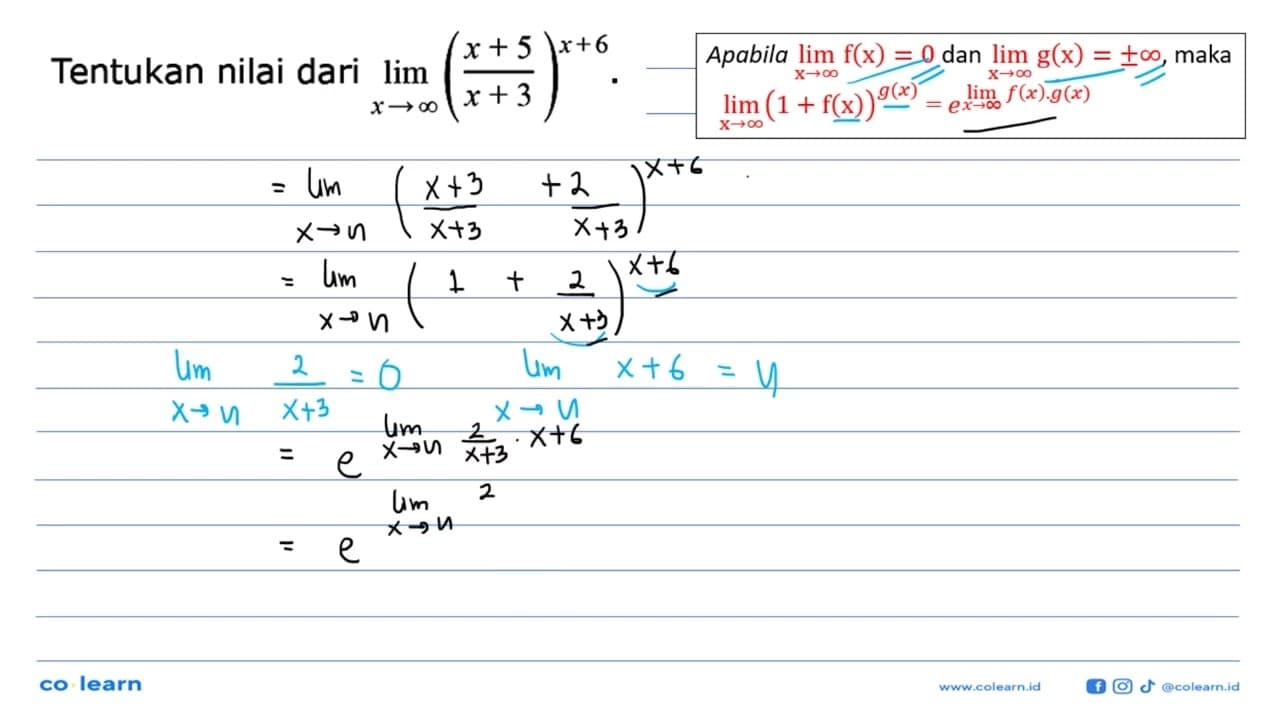 Tentukan nilai dari lim x→∞ ((x + 5)/(x + 3))^(x+6).
Apabila lim x→∞ f(x) = 0 dan lim x→∞ g(x) = ±∞, maka
lim x→∞ (1 + f(x))^g(x) = e^(lim x→∞ f(x).g(x))
= lim x→n ((x+3)/(x+3) + 2/(x+3))^(x+6)
= lim x→n (1 + 2/(x+3))^(x+6)
lim x→n 2/(x+3) = 0 lim x→n x+6 = n
= e^(lim x→n 2/(x+3) · x+6)
= e^(lim x→n 2)
co·learn
www.colearn.id
@colearn.id